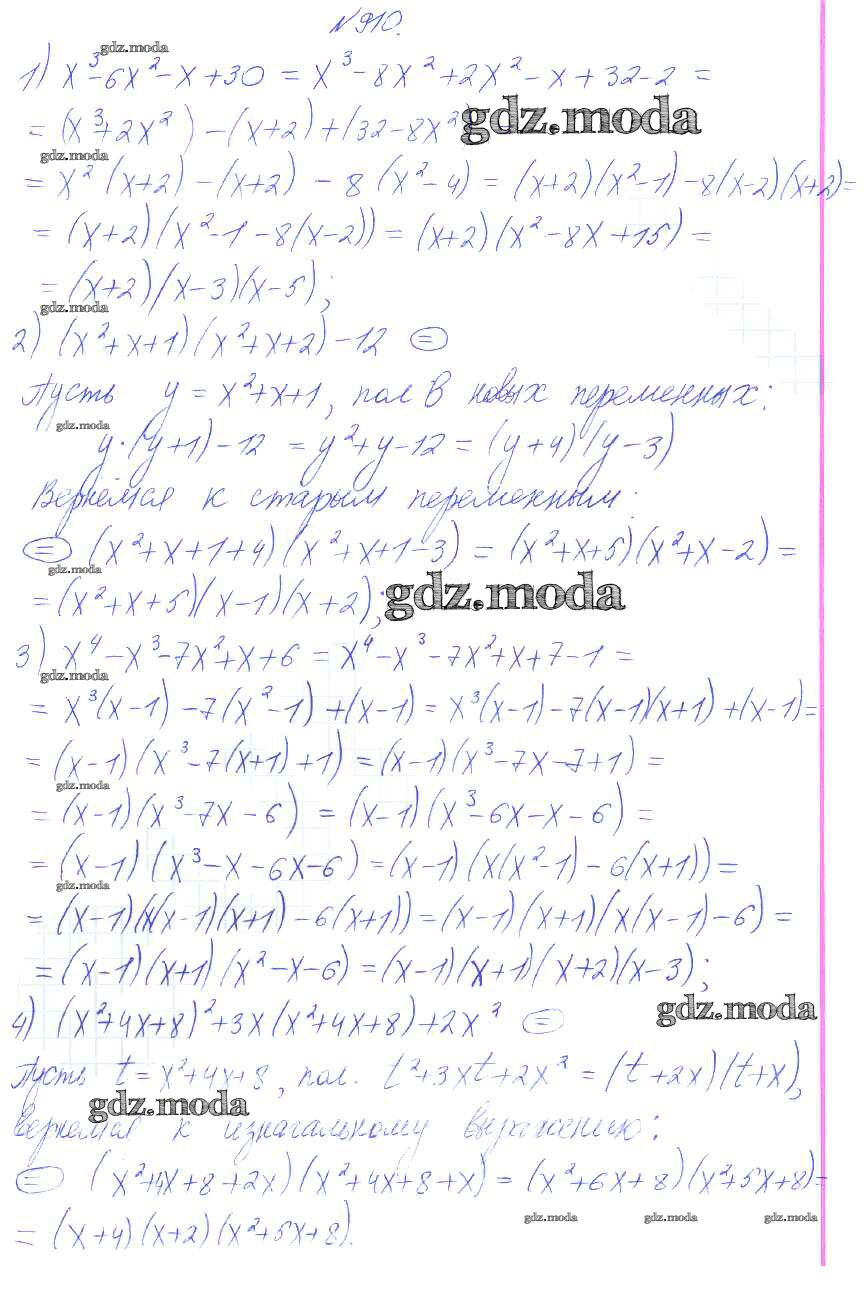 №910.
gdz.moda
1) x³-6x²-x+30 = x³-8x²+2x²-x+32-2 =
= (x³+2x²)-(x+2)+(32-8x²)
gdz.moda
gdz.moda
= x²(x+2)-(x+2)-8(x²-4) = (x+2)(x²-1)-8(x-2)(x+2)=
= (x+2)(x²-1-8(x-2)) = (x+2)(x²-8x+15) =
= (x+2)(x-3)(x-5);
gdz.moda
2) (x²+x+1)(x²+x+2)-12 =
Пусть y = x²+x+1, пол в новых переменных:
gdz.moda
y·(y+1)-12 = y²+y-12 = (y+4)(y-3)
Вернёмся к старым переменным:
= (x²+x+1+4)(x²+x+1-3) = (x²+x+5)(x²+x-2) =
gdz.moda
= (x²+x+5)(x-1)(x+2);
gdz.moda
3) x⁴-x³-7x²+x+6 = x⁴-x³-7x²+x+7-1 =
gdz.moda
= x³(x-1)-7(x²-1)+(x-1) = x³(x-1)-7(x-1)(x+1)+(x-1)=
= (x-1)(x³-7(x+1)+1) = (x-1)(x³-7x-7+1) =
gdz.moda
= (x-1)(x³-7x-6) = (x-1)(x³-6x-x-6) =
= (x-1)(x³-x-6x-6) = (x-1)(x(x²-1)-6(x+1)) =
gdz.moda
= (x-1)(x(x-1)(x+1)-6(x+1)) = (x-1)(x+1)(x(x-1)-6) =
= (x-1)(x+1)(x²-x-6) = (x-1)(x+1)(x+2)(x-3);
gdz.moda
4) (x²+4x+8)²+3x(x²+4x+8)+2x² =
Пусть t = x²+4x+8, пол. t²+3xt+2x² = (t+2x)(t+x),
gdz.moda
вернемся к изначальному выражению:
= (x²+4x+8+2x)(x²+4x+8+x) = (x²+6x+8)(x²+5x+8)=
= (x+4)(x+2)(x²+5x+8).
gdz.moda gdz.moda gdz.moda